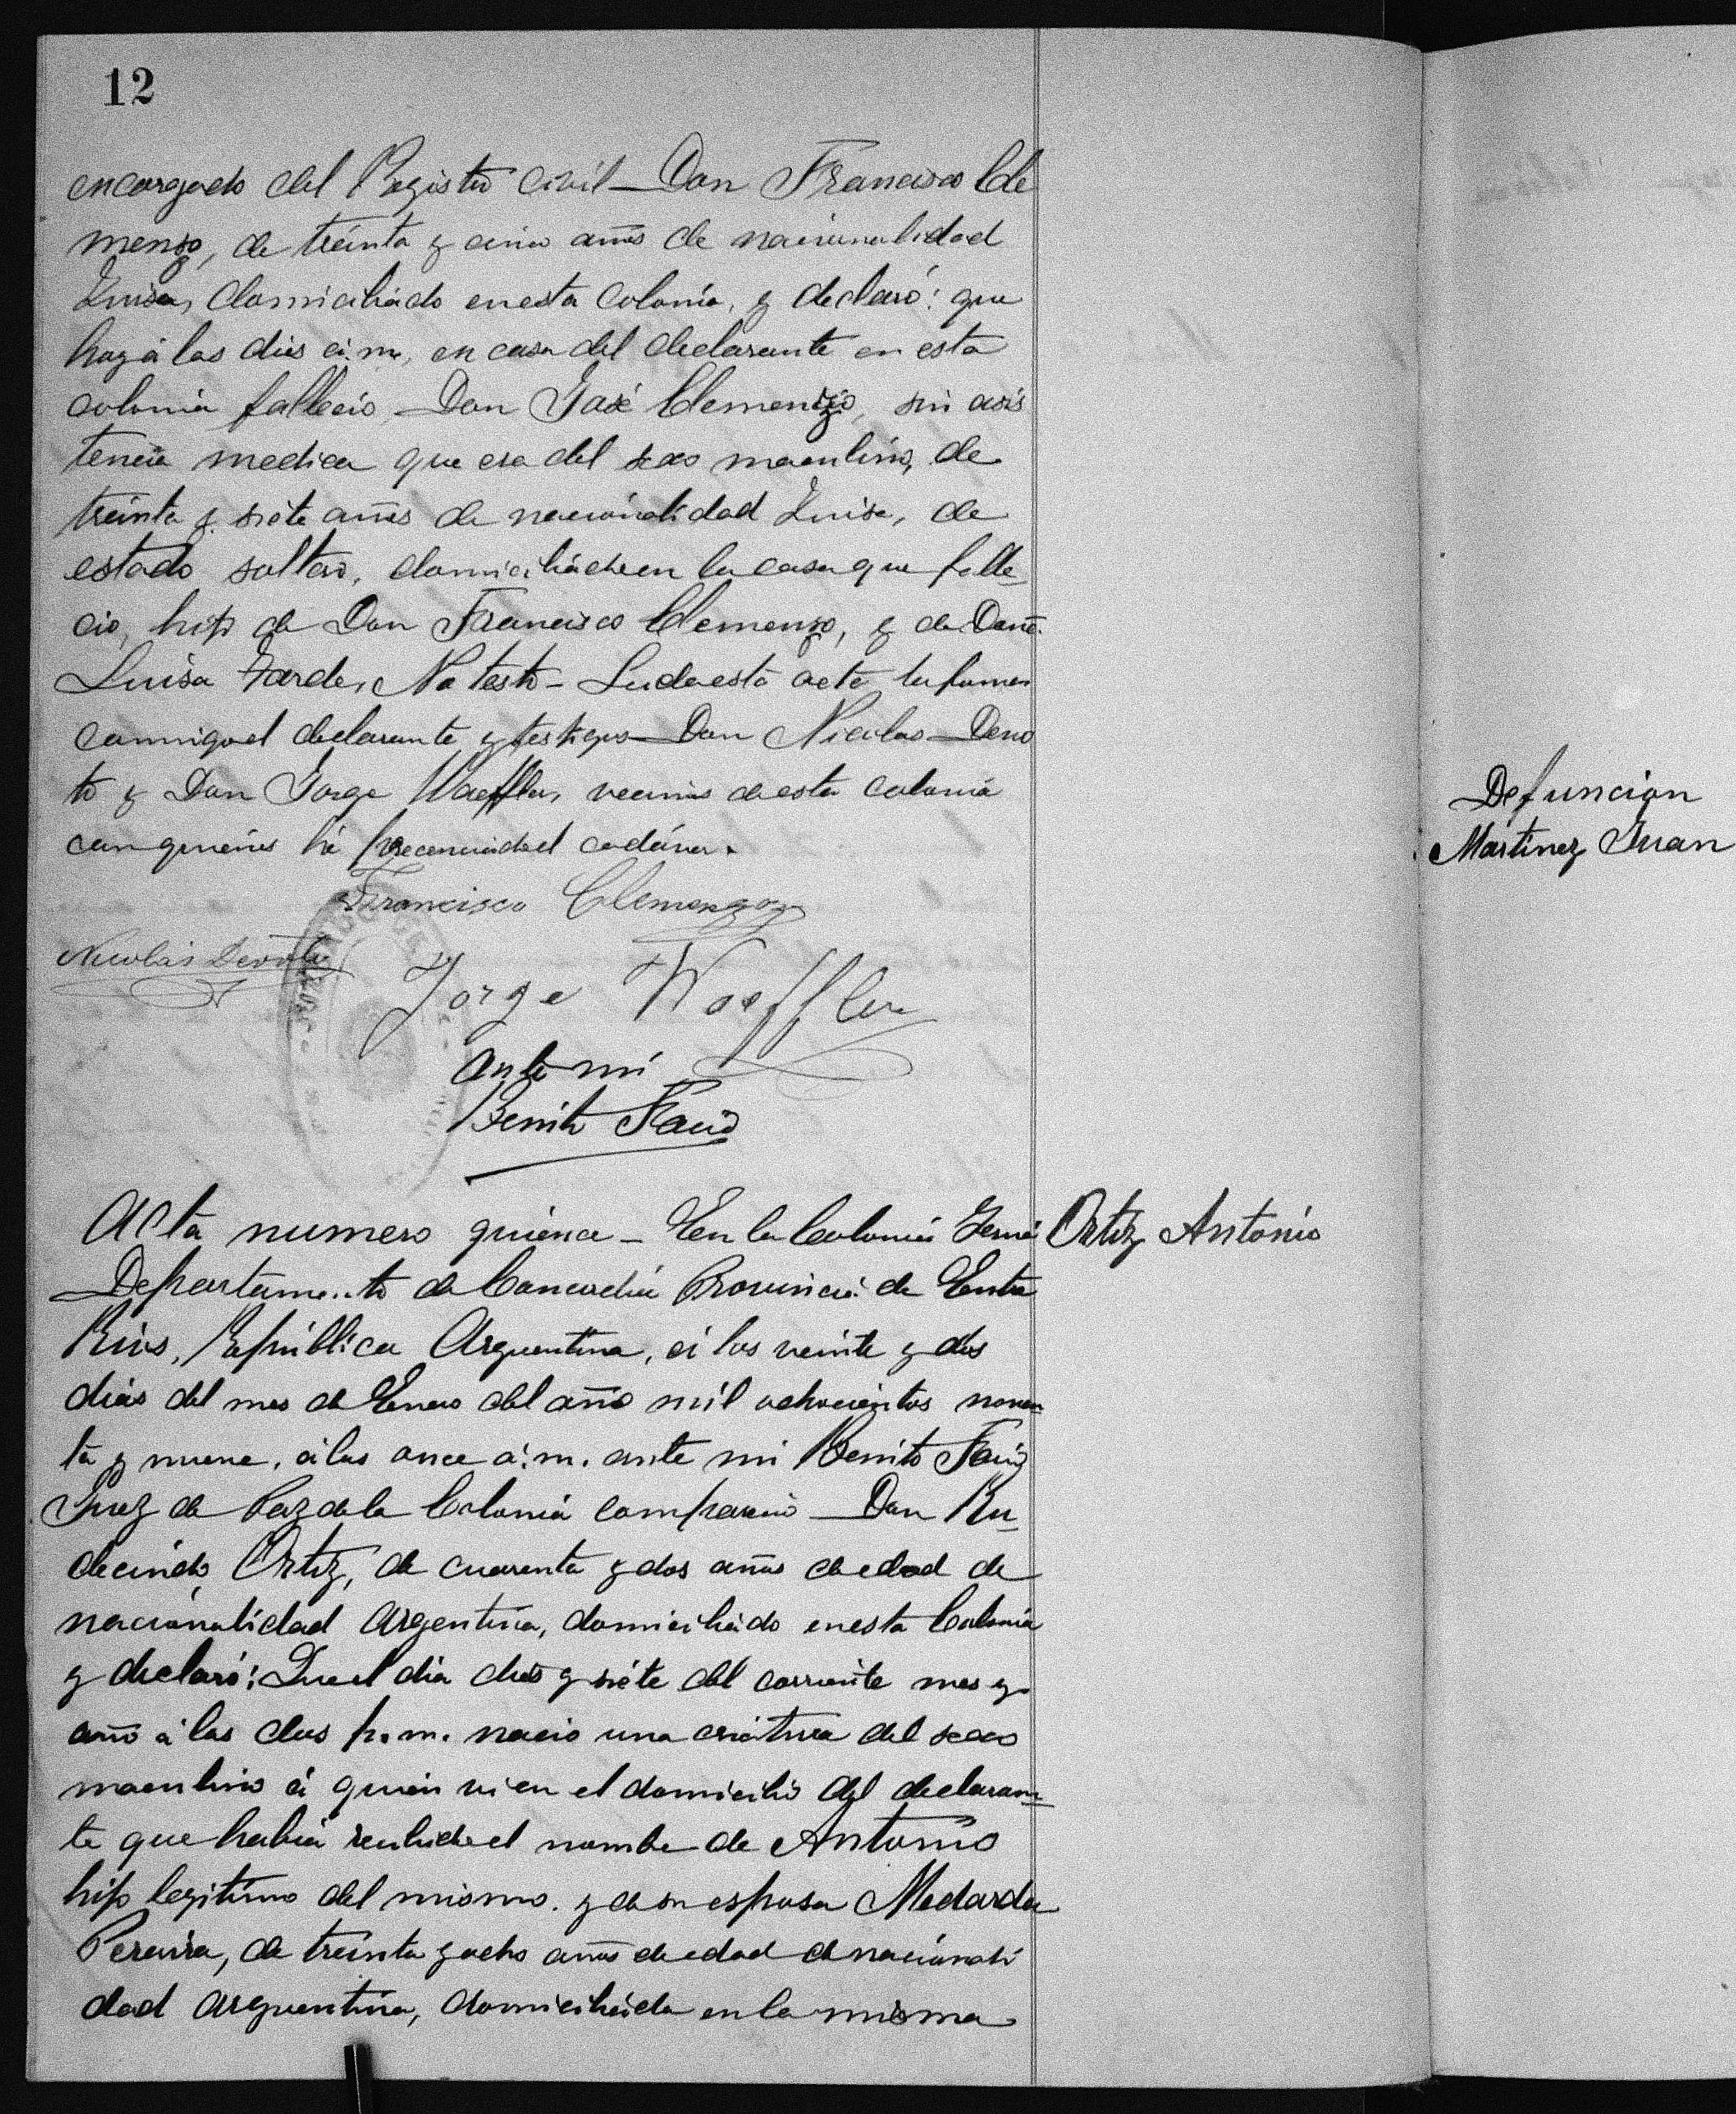 12
encargado del Registro civil - Don Francisco Cle
menzo, de treinta y cinco años de nacionalidad
Suisa, domiciliado en esta colonia, y declaró: que
hoy á las dies a.m, en casa del declarante en esta
colonia fallecio Don José Clemenzo, sin asis
tencia medica que era del sexo masculino, de
treinta y siete años de nacionalidad Suisa, de
estado soltero, domiciliado en la casa que falle
cio, hijo de Don Francisco Clemenzo, y de Doña
Luisa Farde, No testo - Leida esta acta la firman
conmigo el declarante y testigos Don Nicolas Devo
to y Don Jorge Waeffler, vecinos de esta colonia
con quienes hé precenciado el cadáver.
Francisco Clemenzo
Nicolás Devoto
Jorge Waeffler
Ante mi
Benito
Acta numero quince - En la Colonia Yerua
Ortiz Antonio
Departamento de Concordia Provincia de Entre
Rios, República Arguentina, á los veinte y dos
dias del mes de Enero del año mil ochocientos noven
ta y nueve, á las once a.m. ante mi Benito
Juez de Paz de la Colonia comparecio Don Ru
decindo Ortiz, de cuarenta y dos años de edad de
nacionalidad Argentina, domiciliado en esta Colonia
y declaró: Que el dia dies y siete del corriente mes y
año á las dos p.m. nacio una criatura del sexo
masculino á quien vi en el domicilio del declaran
te que habia recibido el nombre de Antonio
hijo legitimo del mismo. y de su esposa Medarda
Pereira, de treinta y ocho años de edad de nacionali
dad Arguentina, domiciliada en la misma
Defuncion
Martinez Juan